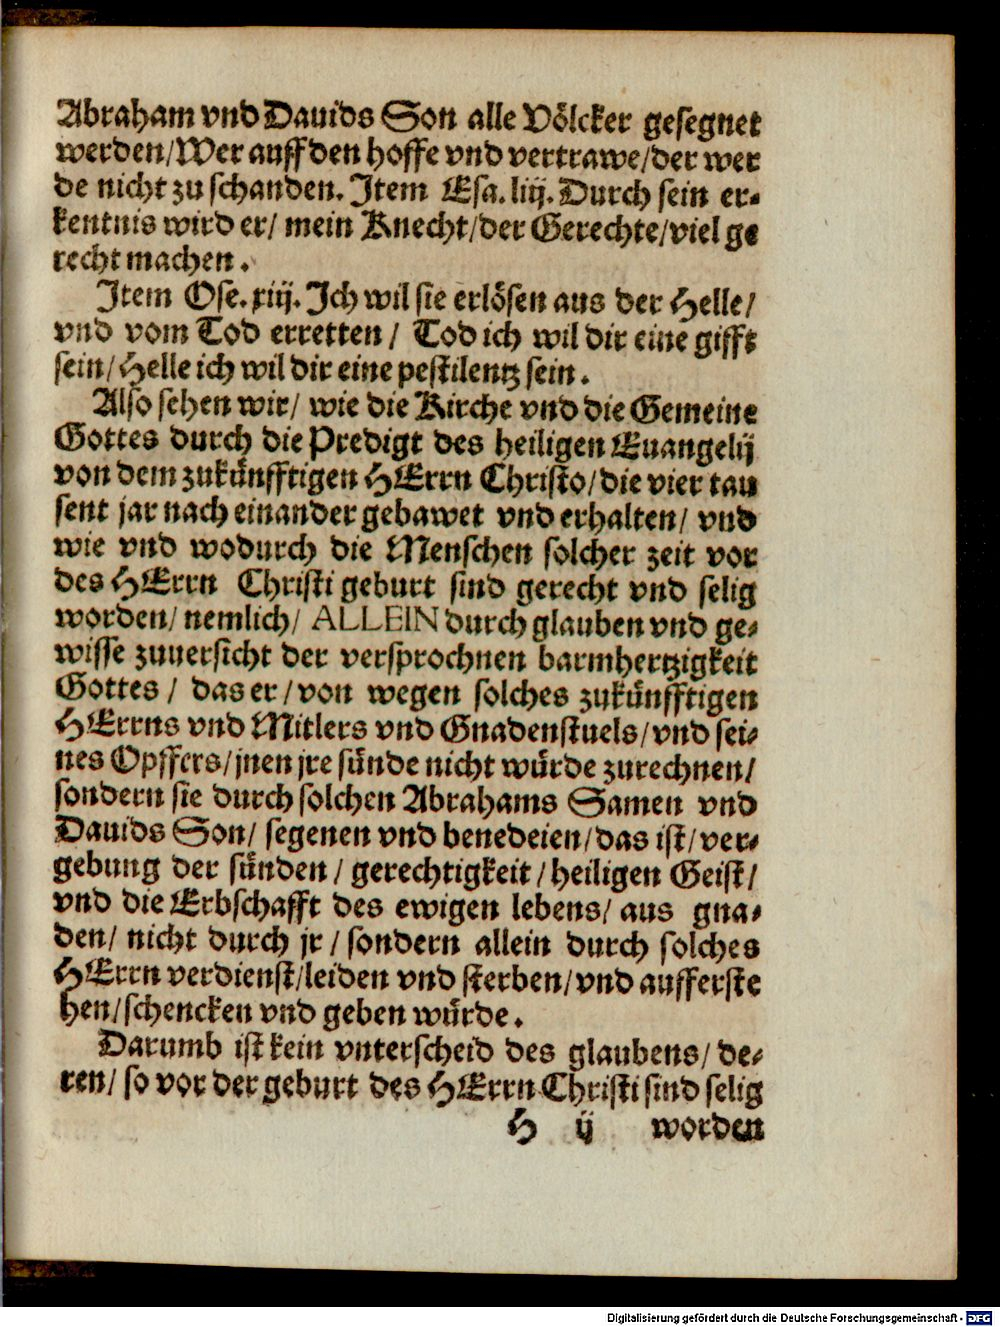 Abraham vnd Dauids Son alle Völcker gesegnet
werden/Wer auff den hoffe vnd vertrawe/der wer
de nicht zu schanden. Item Esa. liij. Durch sein er-
kentnis wird er/ mein Knecht/der Gerechte/viel ge
recht machen.
Item Ose. xiij. Ich wil sie erlösen aus der Helle/
vnd vom Tod erretten/ Tod ich wil dir eine gifft
sein/ Helle ich wil dir eine pestilentz sein.
Also sehen wir/ wie die Kirche vnd die Gemeine
Gottes durch die Predigt des heiligen Euangelij
von dem zukünfftigen HErrn Christo/die vier tau
sent jar nach einander gebawet vnd erhalten/ vnd
wie vnd wodurch die Menschen solcher zeit vor
des HErrn Christi geburt sind gerecht vnd selig
worden/ nemlich/ ALLEIN durch glauben vnd ge-
wisse zuuersicht der versprochnen barmhertzigkeit
Gottes/ das er/von wegen solches zukünfftigen
HErrns vnd Mitlers vnd Gnadenstuels/vnd sei-
nes Opffers/jnen jre sünde nicht würde zurechnen/
sondern sie durch solchen Abrahams Samen vnd
Dauids Son/ segenen vnd benedeien/das ist/ver-
gebung der sünden/ gerechtigkeit/heiligen Geist/
vnd die Erbschafft des ewigen lebens/ aus gna-
den/ nicht durch jr/ sondern allein durch solches
HErrn verdienst/leiden vnd sterben/vnd aufferste
hen/schencken vnd geben würde.
Darumb ist kein vnterscheid des glaubens/ de-
ren/ so vor der geburt des HErrn Christi sind selig
H ij worden
Digitalisierung gefördert durch die Deutsche Forschungsgemeinschaft - DFG